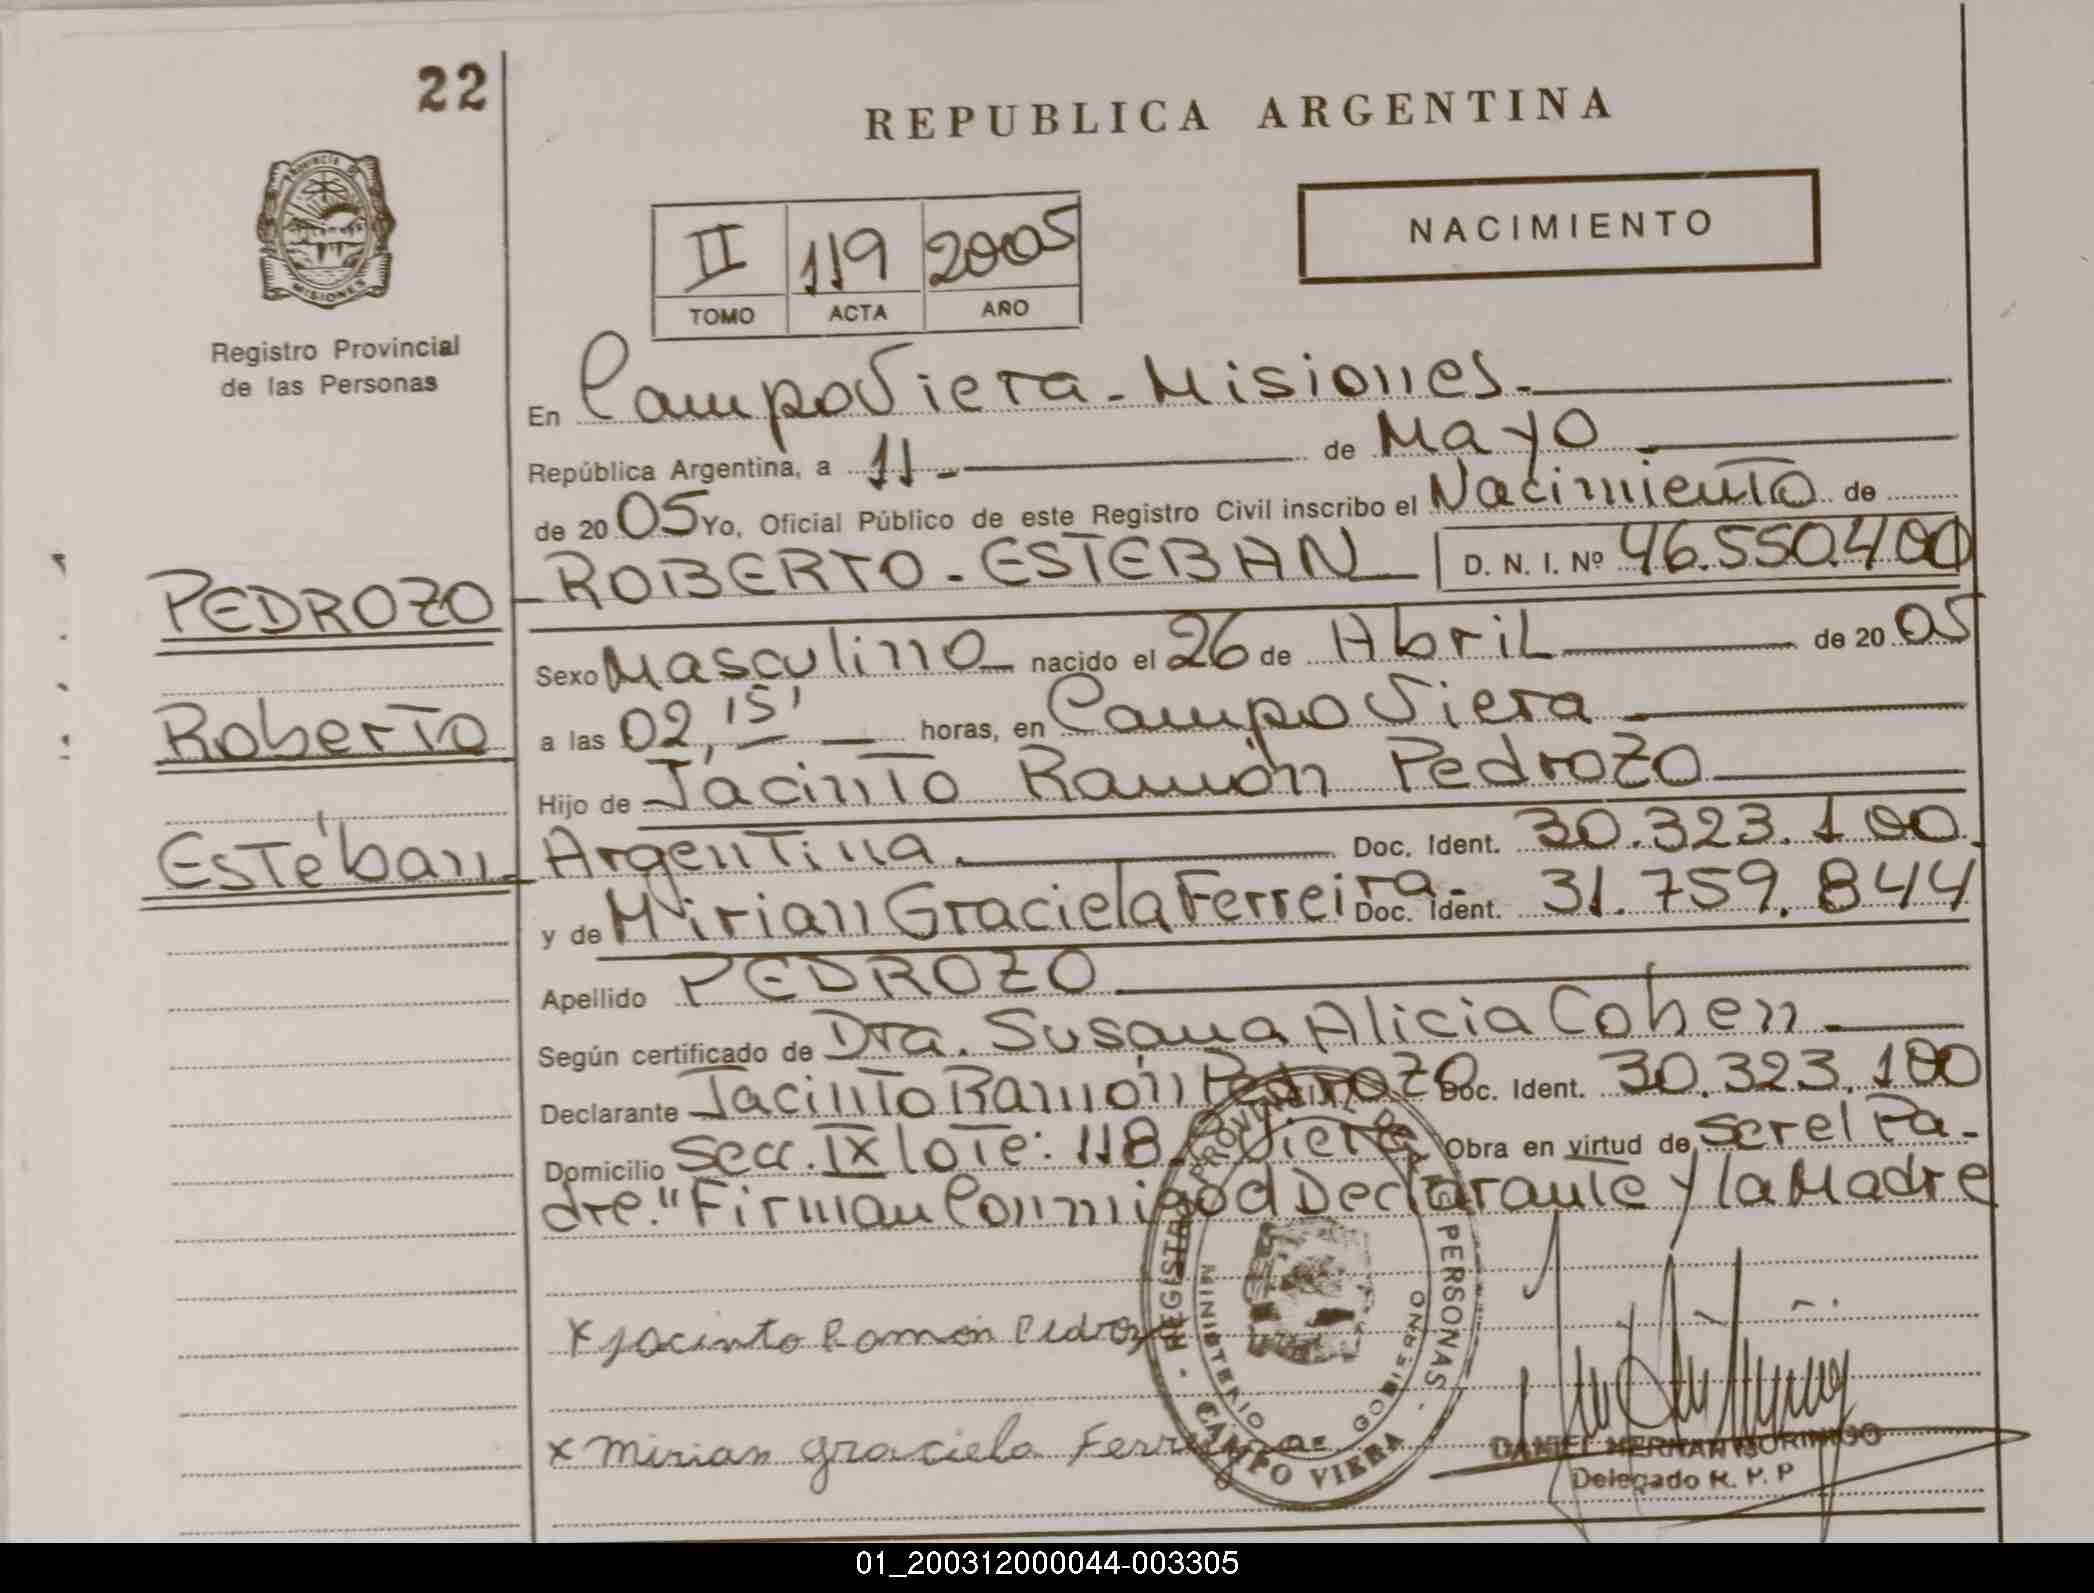 22
REPUBLICA ARGENTINA
PROVINCIA DE
MISIONES
NACIMIENTO
II 119 2005
TOMO ACTA AÑO
Registro Provincial
de las Personas
En Campo Viera - Misiones.
República Argentina, a 11 - de Mayo
de 20 05 Yo, Oficial Público de este Registro Civil inscribo el Nacimiento de
PEDROZO - ROBERTO - ESTEBAN D. N. I. Nº 46.550.400
Sexo Masculino nacido el 26 de Abril de 20 05
Roberto a las 02, 15' horas, en Campo Viera
Hijo de Jacinto Ramón Pedrozo
Estéban - Argentina. Doc. Ident. 30.323.100
y de Mirian Graciela Ferreira - Doc. Ident. 31.759.844
Apellido PEDROZO
Según certificado de Dra. Susana Alicia Cohen
Declarante Jacinto Ramón Pedrozo Doc. Ident. 30.323.100
Domicilio Secc. IX lote: 118 C. Viera Obra en virtud de ser el Pa-
dre." Firman Conmigo el Declarante y la Madre
x Jacinto Ramon Pedrozo
x Mirian Graciela
REGISTRO PROVINCIAL DE LAS PERSONAS
MINISTERIO DE GOBIERNO
CAMPO VIERA
DANIEL HERNAN MORINIGO
Delegado R. P. P
01_200312000044-003305